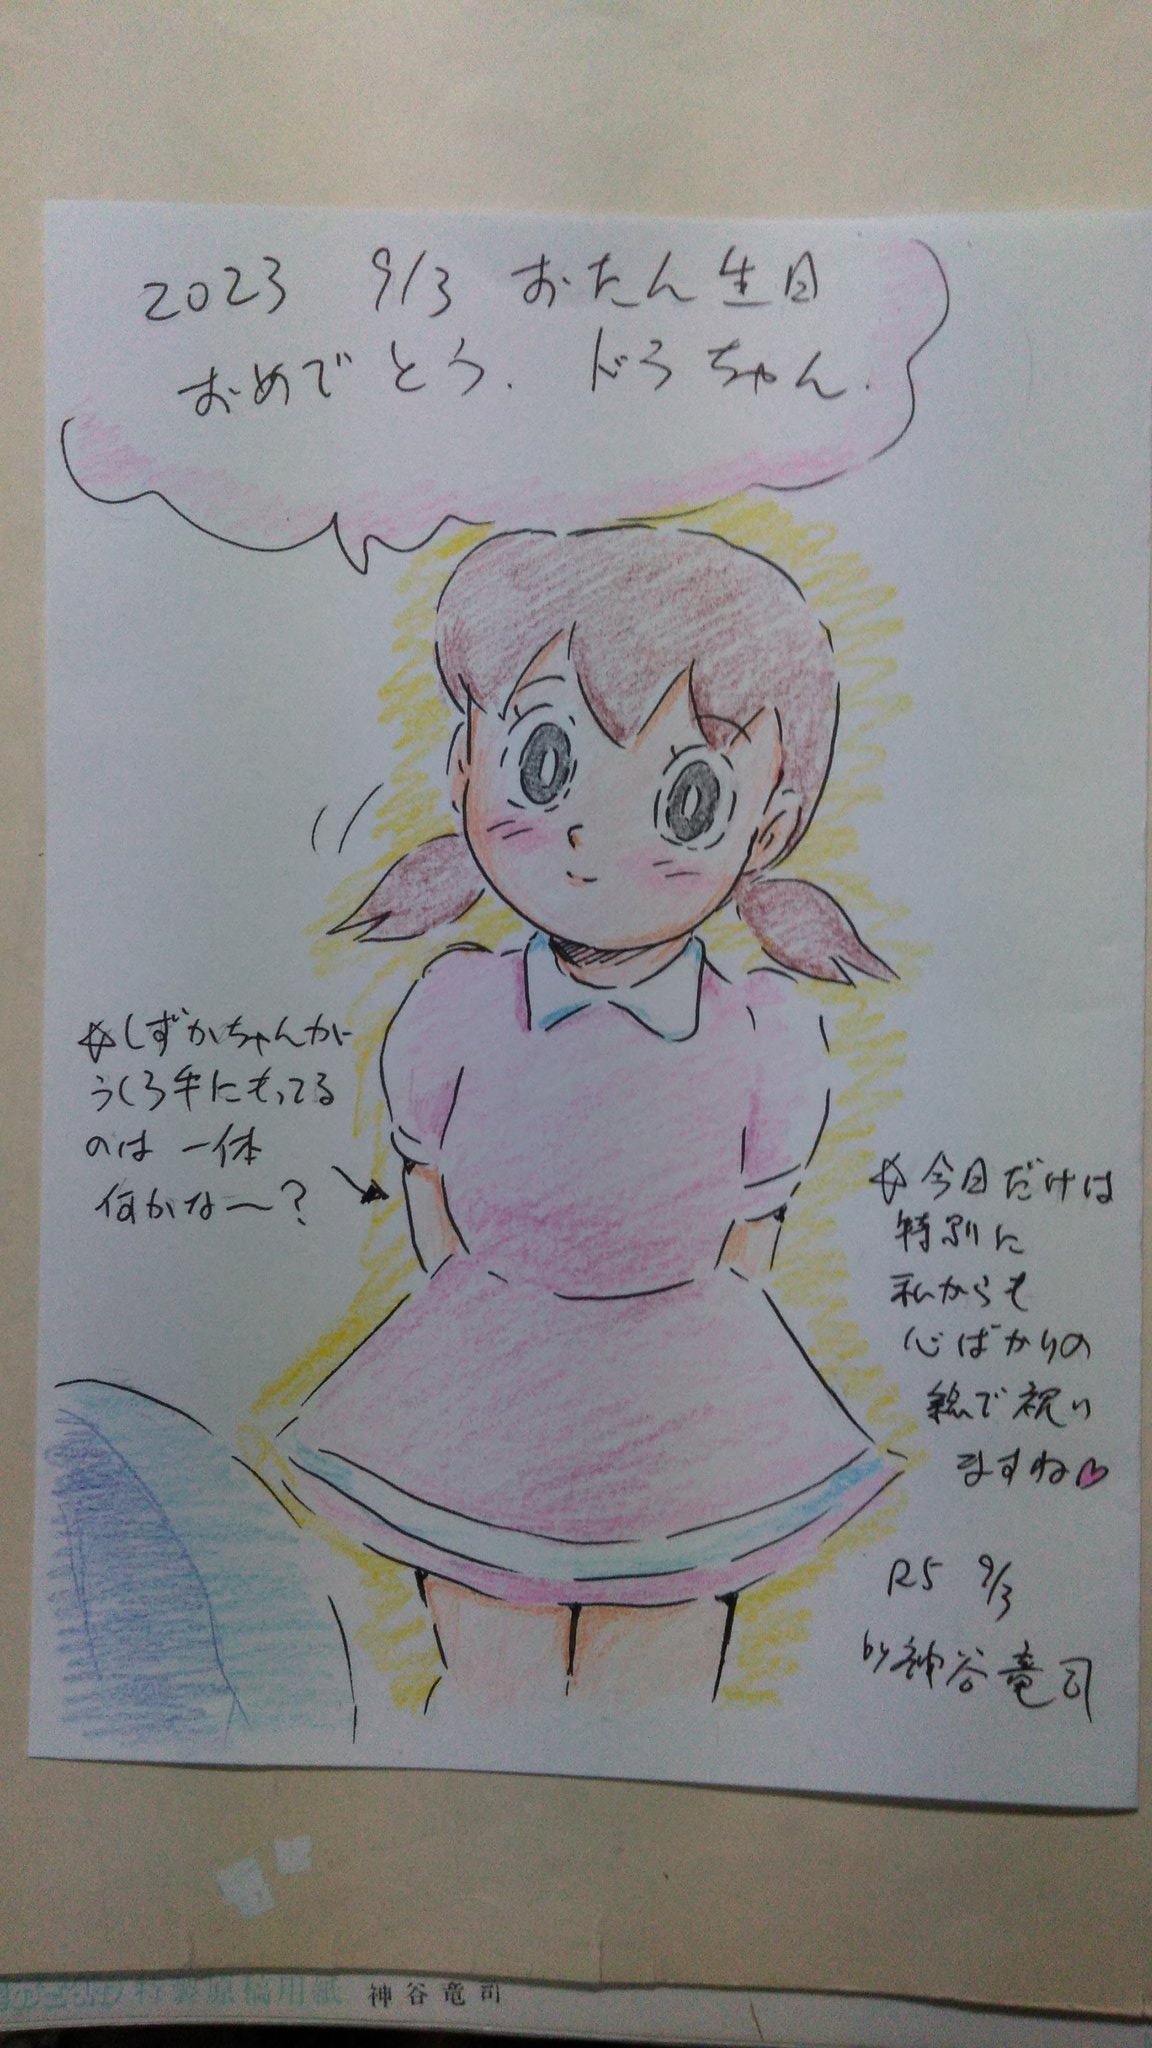 2023 9/3 おたん生日
おめでとう. ドラちゃん.
☆しずかちゃんが
うしろ手にもってる
のは 一体
何かな〜?
☆今日だけは
特別に
私からも
心ばかりの
絵で祝い
ますね♡
R5 9/3
by 神谷竜司
特製原稿用紙 神谷竜司